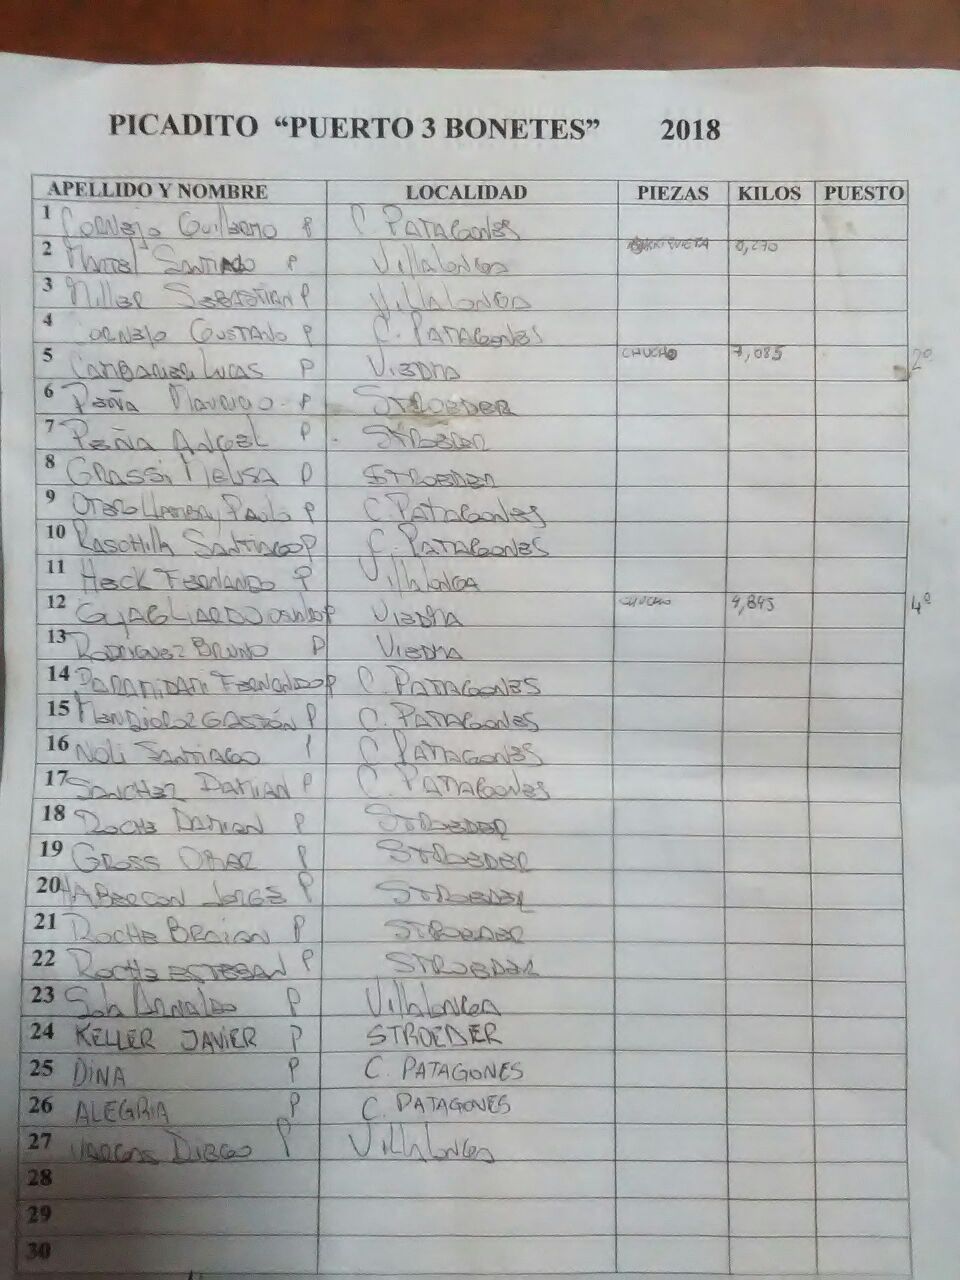 PICADITO "PUERTO 3 BONETES" 2018
APELLIDO Y NOMBRE LOCALIDAD PIEZAS KILOS PUESTO
1 CORNEJO GUILLERMO P C. PATAGONES
2 SANTIAGO P VILLALONGA 0,270
3 MILLER SEBASTIAN P VILLALONGA
4 CORNEJO GUSTAVO P C. PATAGONES
5 LUCAS P VIEDMA CHUCHO 7,085 2º
6 PEÑA MAURICIO P STROEDER
7 PEÑA ANGEL P STROEDER
8 GRASSI MELISA P STROEDER
9 OTERO PAULO P C. PATAGONES
10 SANTIAGO P C. PATAGONES
11 HECK FERNANDO P VILLALONGA
12 GUAGLIARDO P VIEDMA CHUCHO 4,845 4º
13 RODRIGUEZ BRUNO P VIEDMA
14 FERNANDO P C. PATAGONES
15 GASTÓN P C. PATAGONES
16 NOLI SANTIAGO C. PATAGONES
17 SANCHEZ DAMIAN P C. PATAGONES
18 ROCHE DAMIAN P STROEDER
19 GROSS OMAR P STROEDER
20 HABERCON JORGE P STROEDER
21 ROCHE BRAIAN P STROEDER
22 ROCHE ESTEBAN P STROEDER
23 ARNALDO P VILLALONGA
24 KELLER JAVIER P STROEDER
25 DINA P C. PATAGONES
26 ALEGRIA P C. PATAGONES
27 VARGAS DIEGO P VILLALONGA
28
29
30